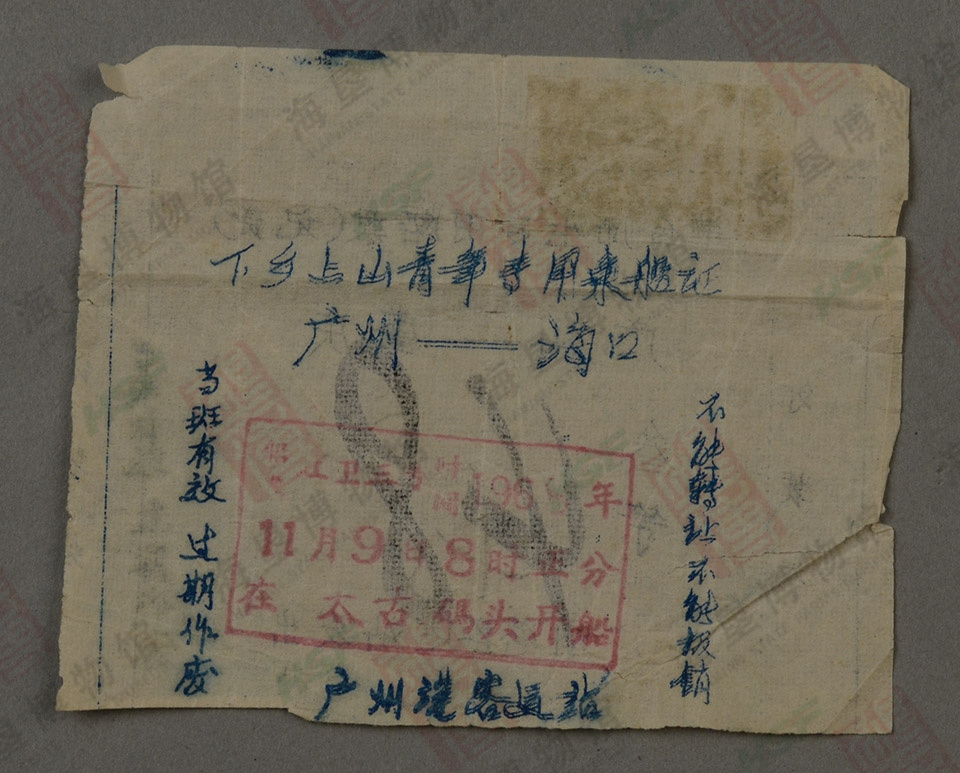 下乡上山青年专用乘船证
广州——海口
当班有效 过期作废
不能转让不能报销
红卫三号 时间 196 年
11月9日8时正分
在 太古码头开船
84
广州港客运站
海垦博物馆